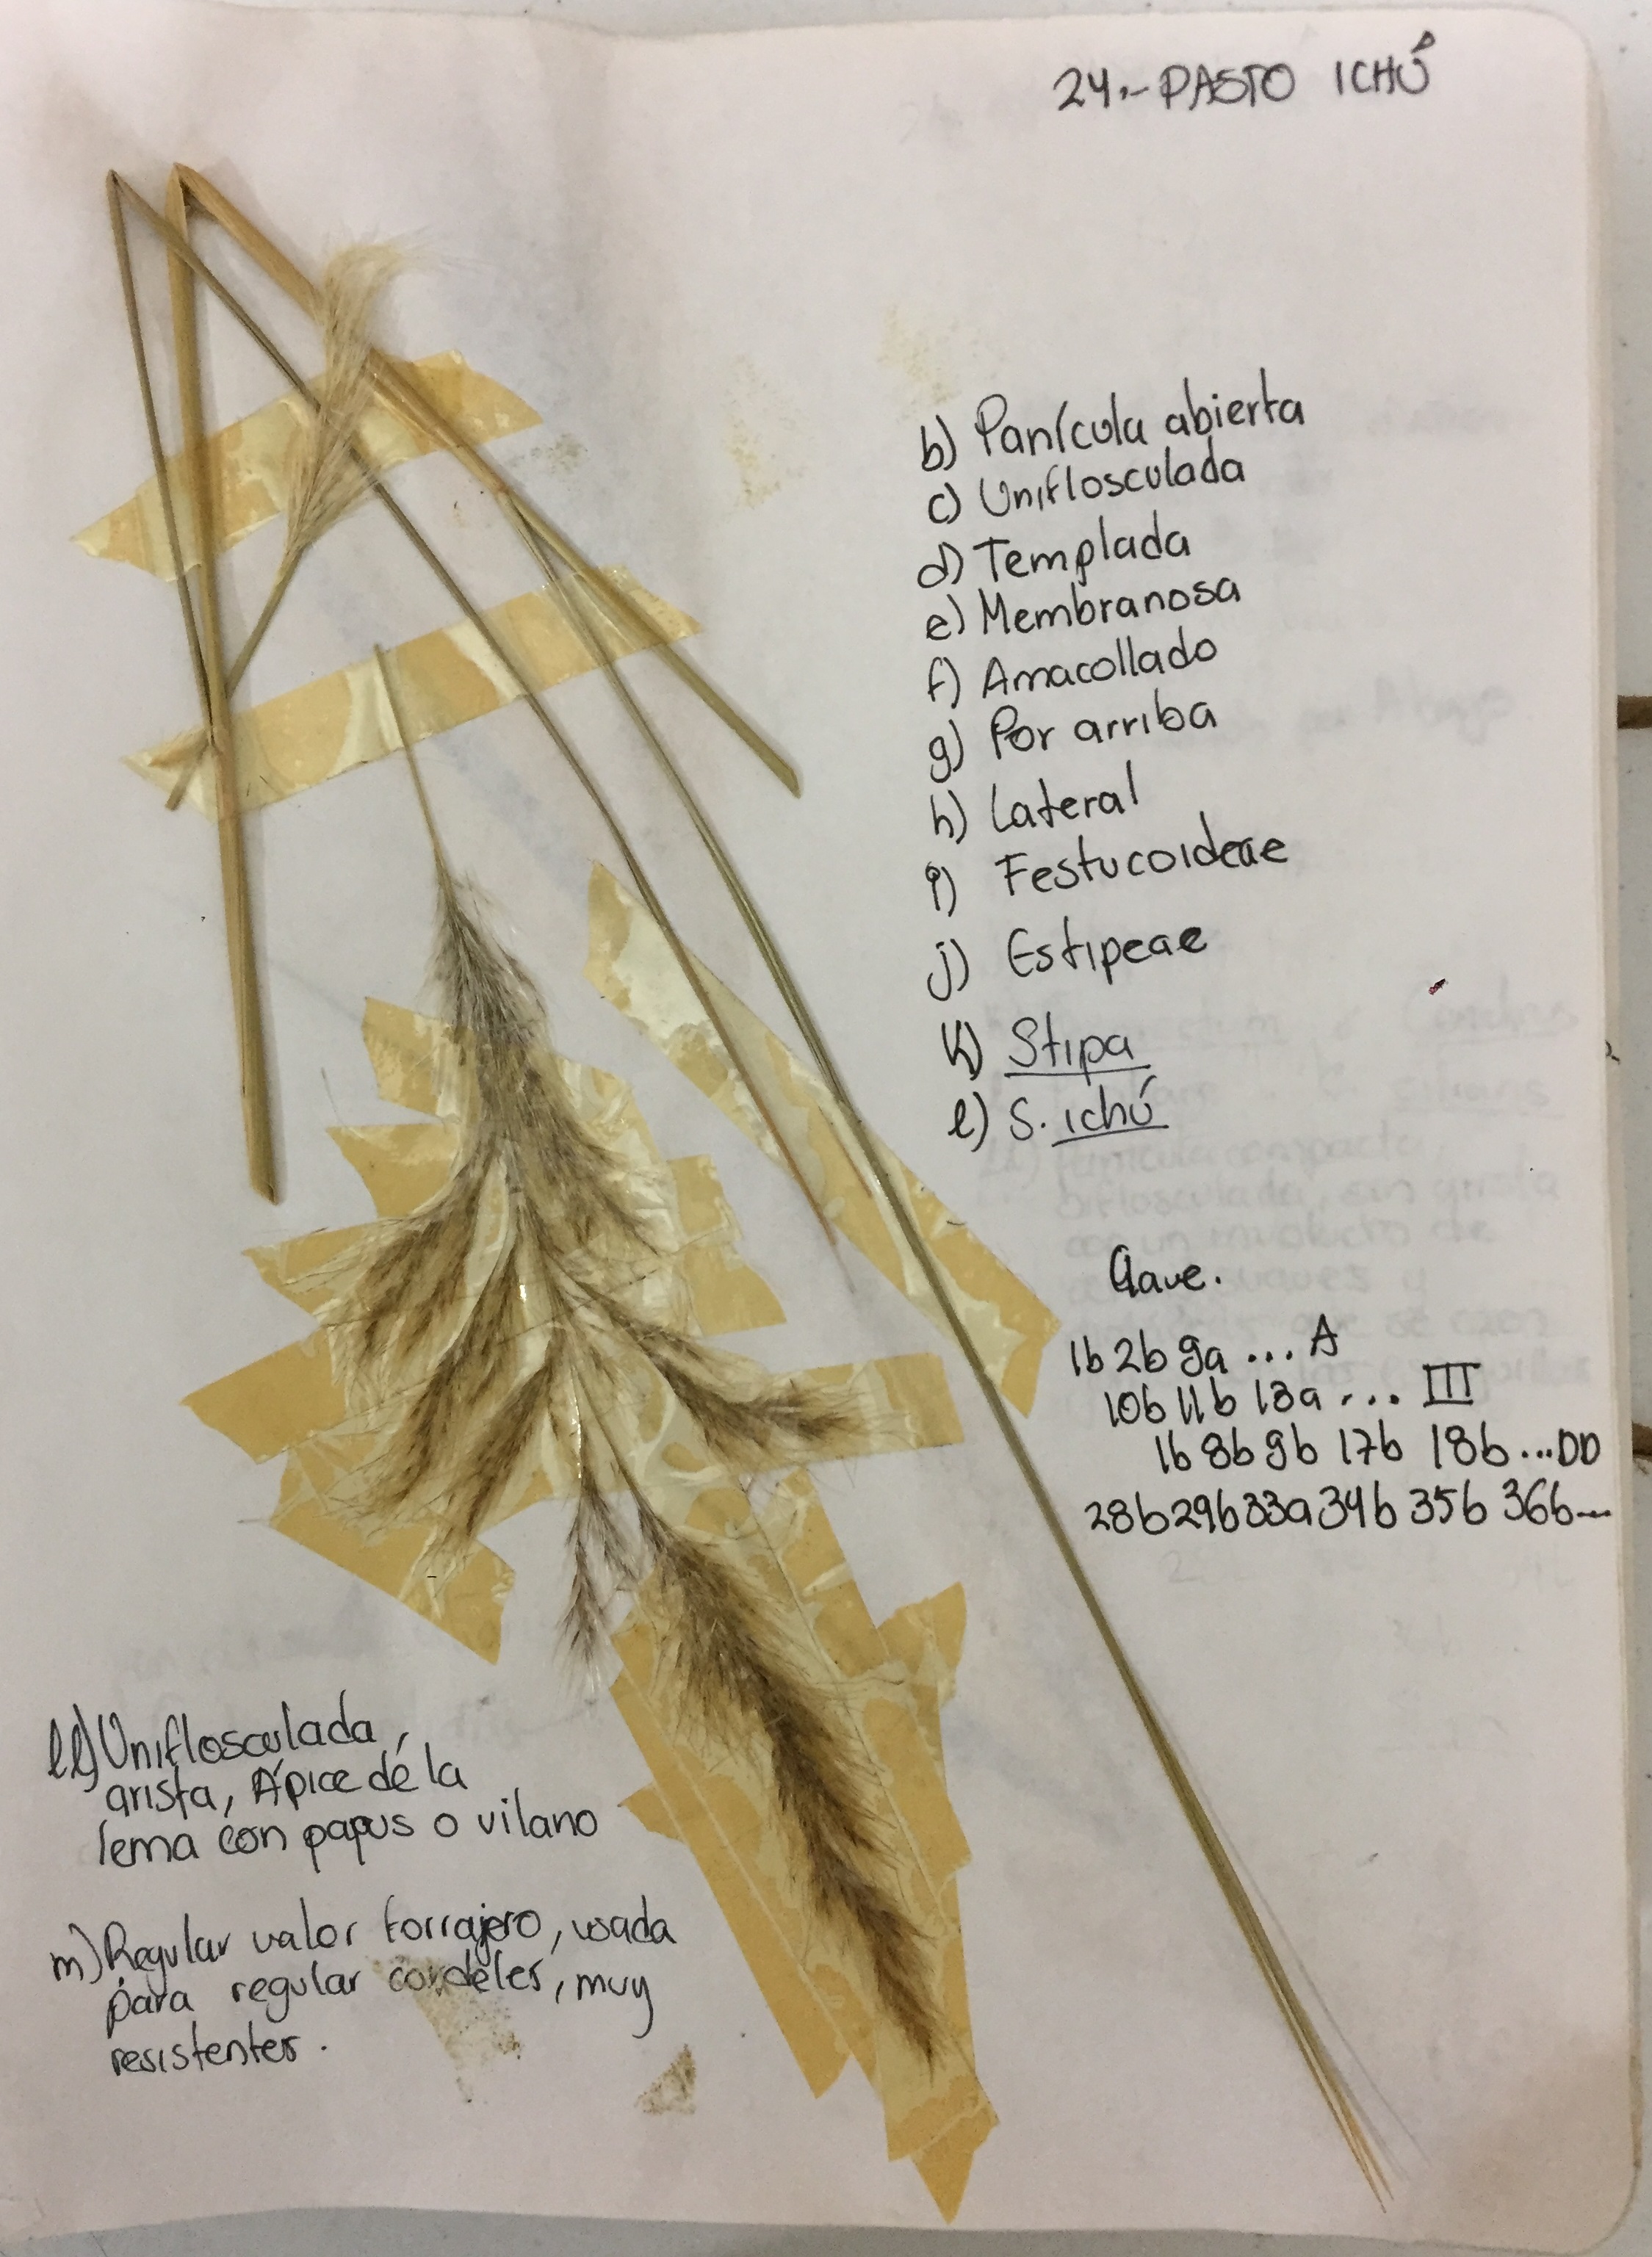 24.- PASTO ICHÚ
b) Panícula abierta
c) Uniflosculada
d) Templada
e) Membranosa
f) Amacollado
g) Por arriba
h) Lateral
i) Festucoideae
j) Estipeae
k) Stipa
l) S. ichú
Clave.
1b 2b 9a ... A
10b 11b 13a ... III
1b 8b 9b 17b 18b ...DD
28b 29b 33a 34b 35b 36b...
ll) Uniflosculada,
arista, Ápice de la
lema con papus o vilano
m) Regular valor forrajero, usada
para regular cordeles, muy
resistentes.